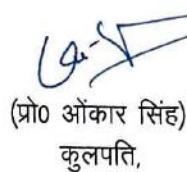 (प्रो0 ओंकार सिंह)
कुलपति,